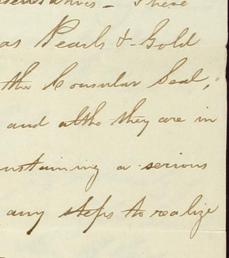 These
as Pearls & Gold
the Consular Seal,
and altho they are in
a serious
any steps to realize